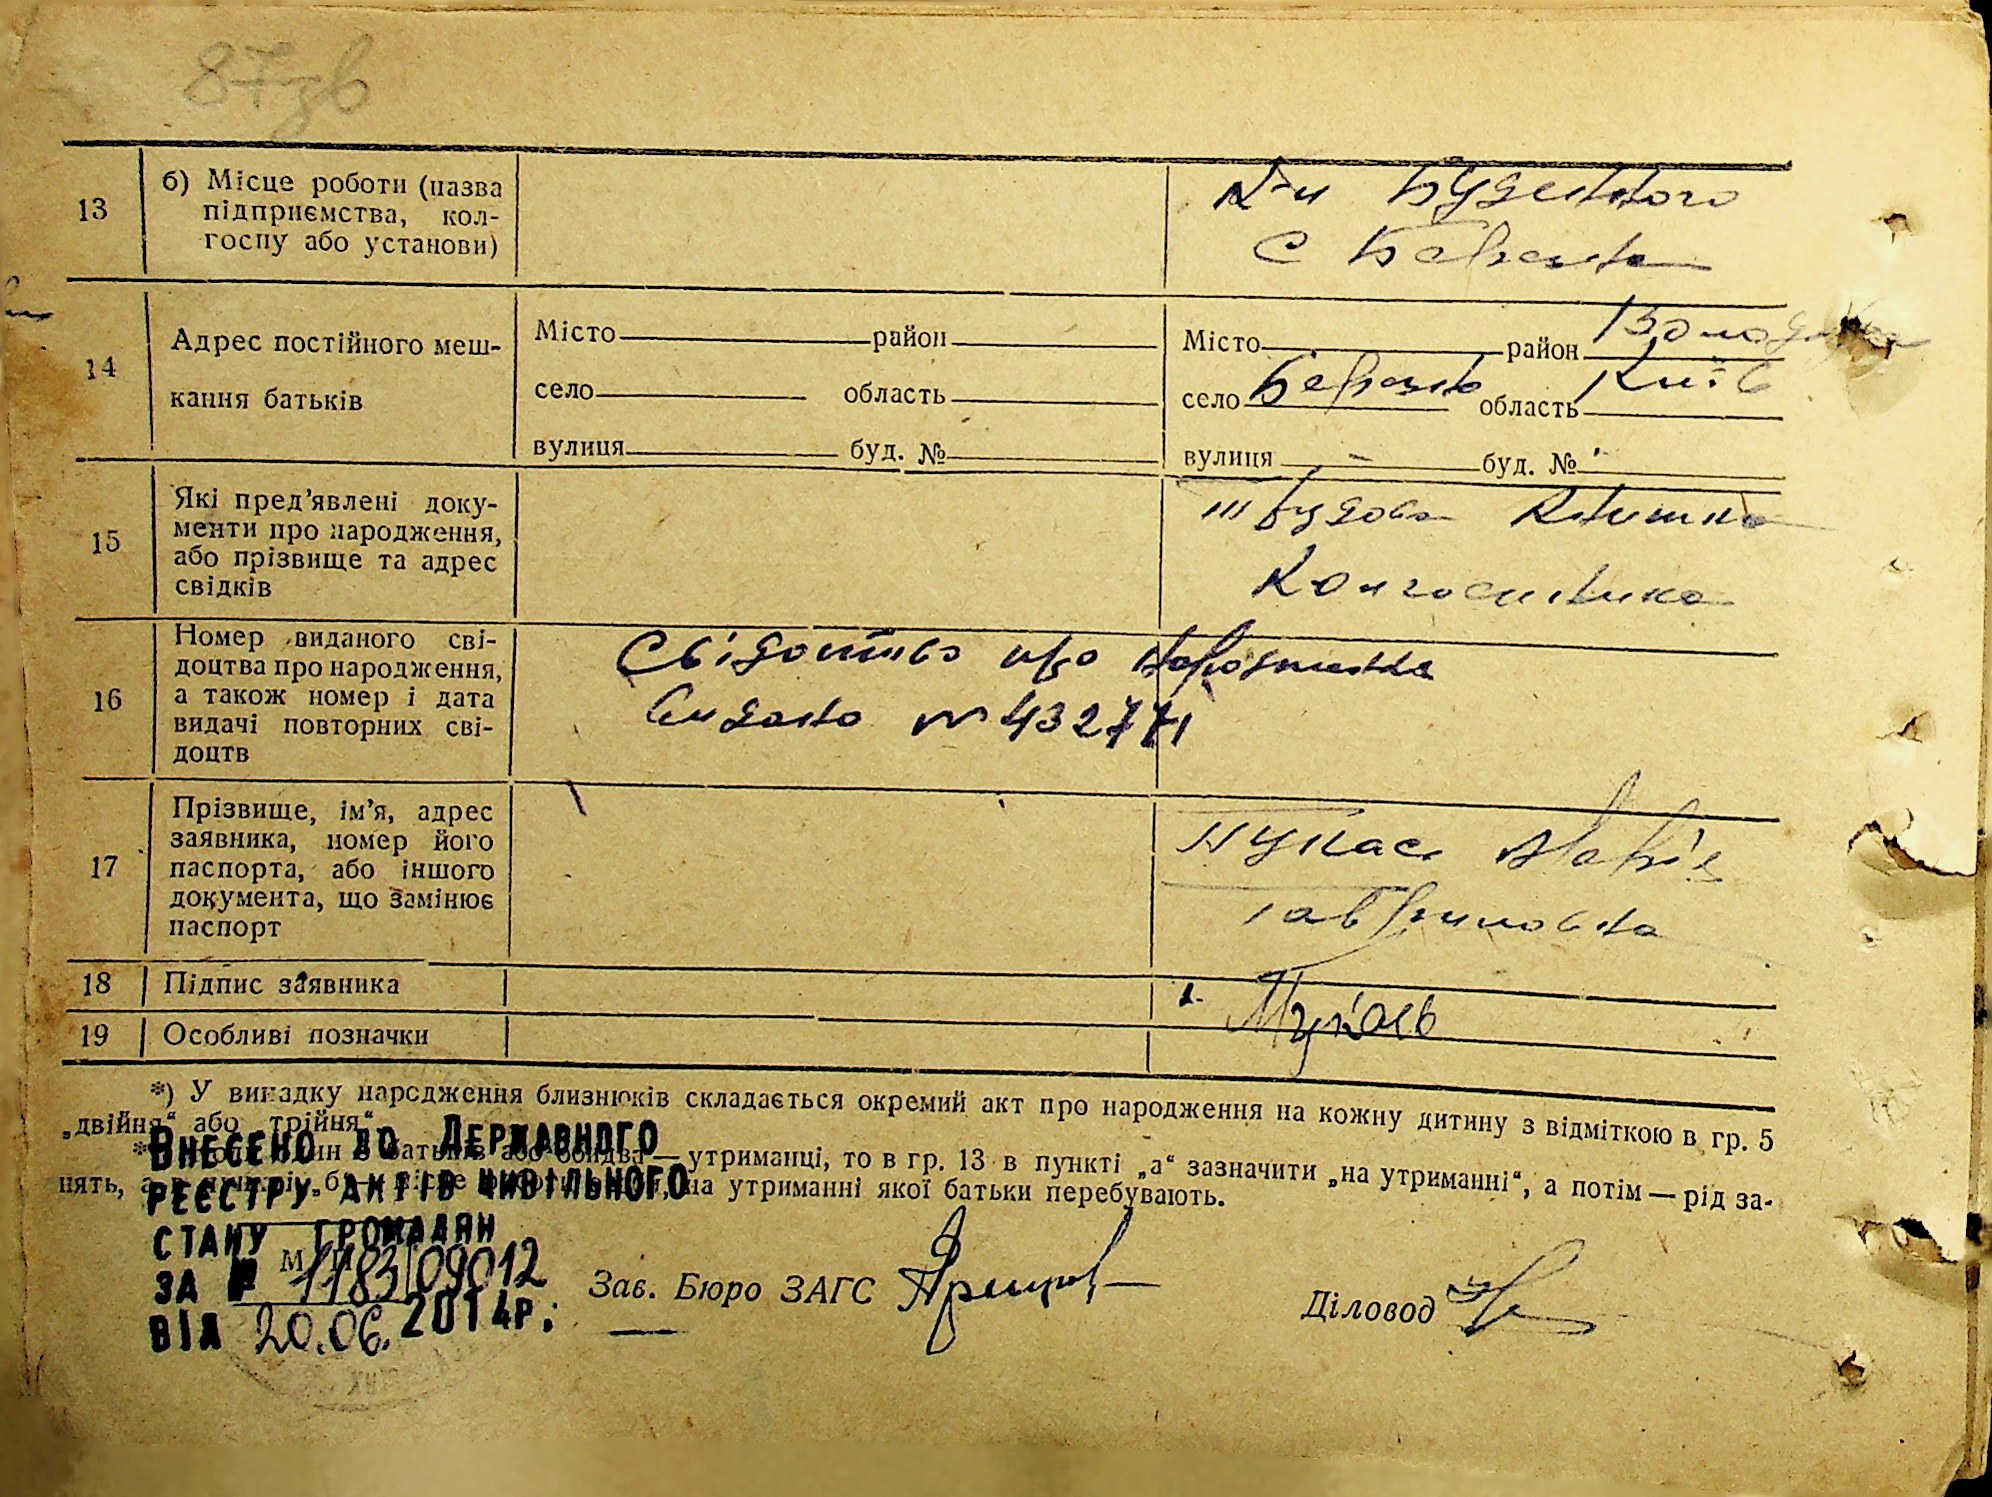 87зв
13
б) Місце роботи (назва
підприємства, кол-
госпу або установи)
К-п Буденного
С
14
Адрес постійного меш-
кання батьків
Місто район
село область
вулиця буд. №
Місто район
село область Київ
вулиця - буд. №
15
Які пред'явлені доку-
менти про народження,
або прізвище та адрес
свідків
Трудова Книжка
Колгоспника
16
Номер виданого сві-
доцтва про народження,
а також номер і дата
видачі повторних сві-
доцтв
Свідоцтво про народження
видано № 432771
17
Прізвище, ім'я, адрес
заявника, номер його
паспорта, або іншого
документа, що замінює
паспорт
Марія
Гавриловна
18
Підпис заявника
19
Особливі позначки
*) У випадку народження близнюків складається окремий акт про народження на кожну дитину з відміткою в гр. 5
„двійня“ або „трійня“.
утриманці, то в гр. 13 в пункті „а“ зазначити „на утриманні“, а потім — рід за-
нять, на утриманні якої батьки перебувають.
Внесено до Державного
реєстру актів цивільного
стану громадян
за № 1183/09012
від 20.06.2014р.
Зав. Бюро ЗАГС
Діловод